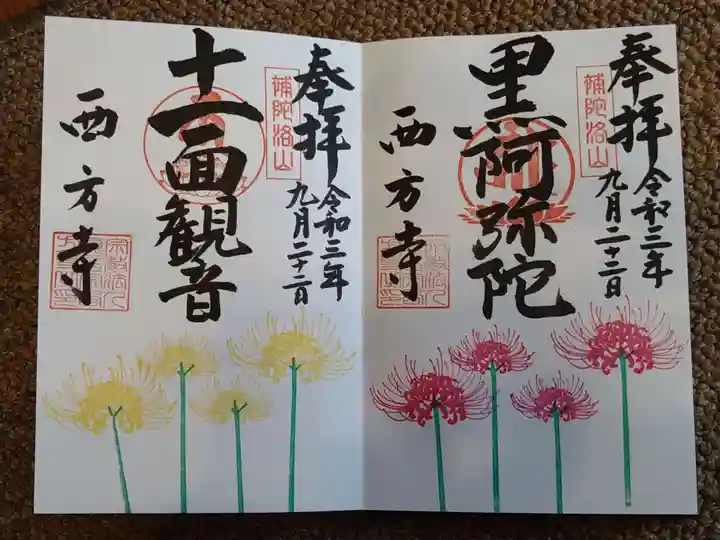 奉拝
令和三年
九月二十二日
補陀洛山
黒阿弥陀
西方寺
奉拝
令和三年
九月二十二日
補陀洛山
十一面観音
西方寺